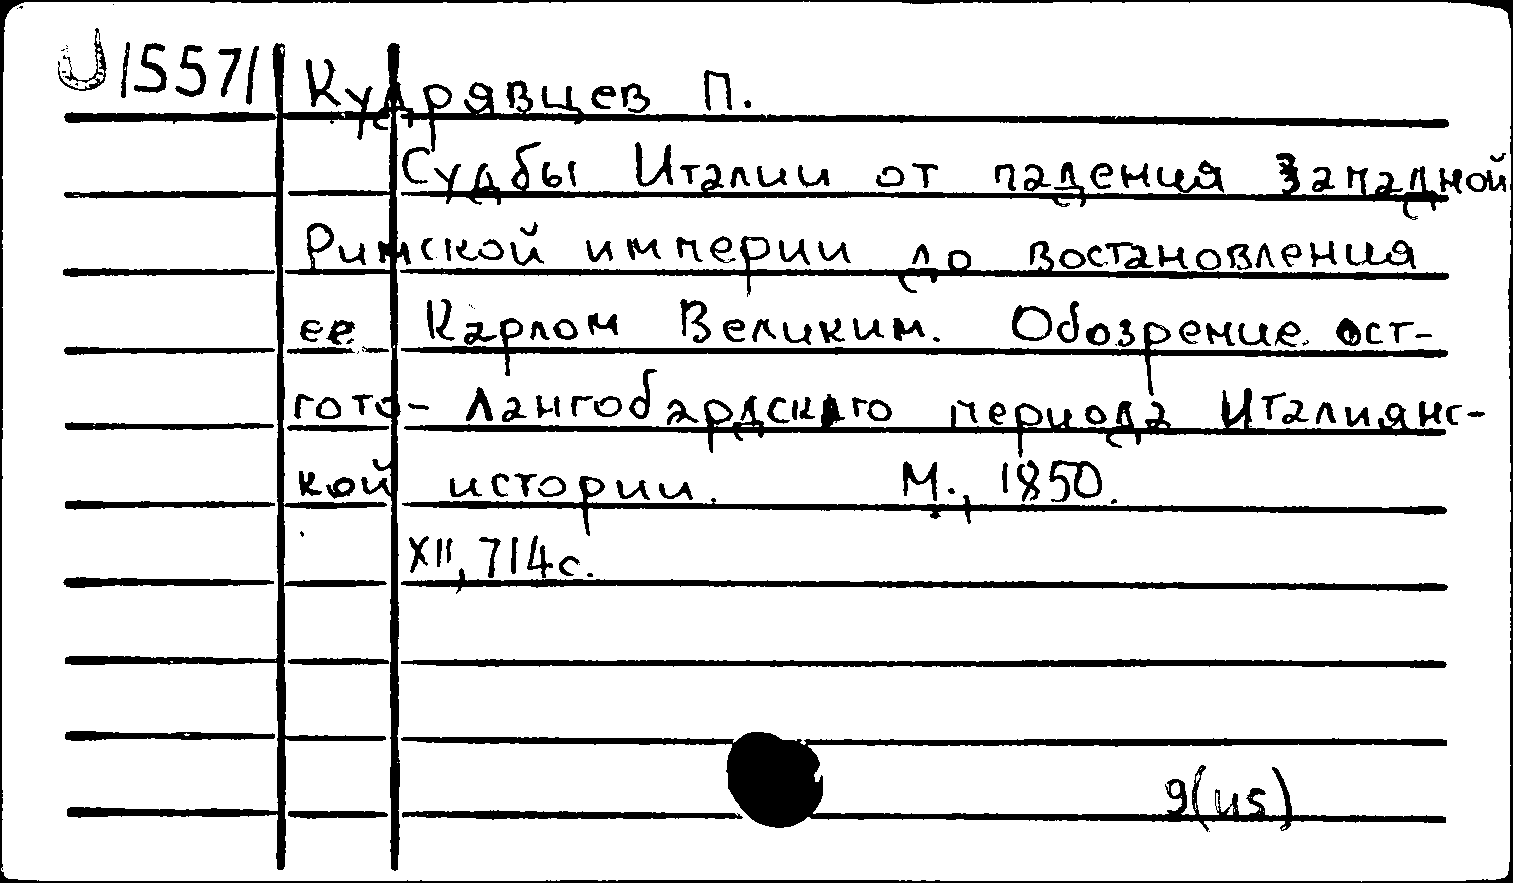 U 15571 Кудрявцев П.
Судбы Италии от падения Западной
Римской империи до востановления
ее Карлом Великим. Обозрение ост-
гото-Лангобардского периода Италиянс-
кой истории. М., 1850.
XII, 714с.
9(И5)